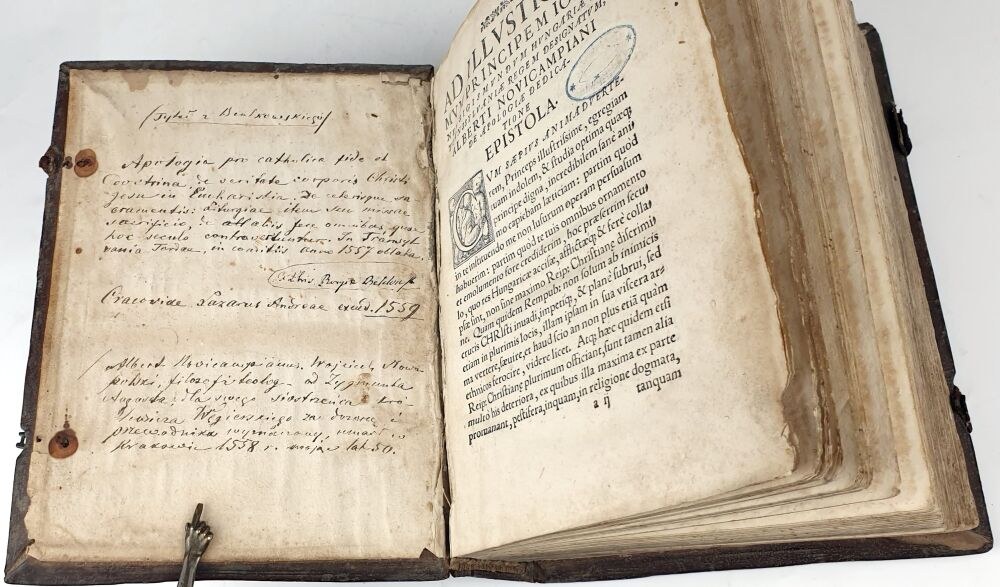 (Tytuł z Bentkowskiego)
Apologia pro catholica fide et
doctrina, de veritate corporis Christi
Jesu in Eucharistia, De ceterisque sa
cramentis: liturgiae item seu missae
sacrificio, ac aliis fere omnibus, quae
hoc seculo controvertuntur. In Transyl
vania Tordae, in comitiis anno 1557 oblata.
Cracoviae Lazarus Andreae excud. 1559
Albert Novicampianus, Wojciech Nowo
polski, filozof i teolog od Zygmunta
Augusta dla swego siostrzeńca kró
lewicza Węgierskiego za dozorcę i
przewodnika wyznaczony, umarł w
Krakowie 1558 r. mając lat 50.
AD ILLVSTRIS
MVM PRINCIPEM IO
SIGISMVNDVM HVNGARIÆ
TRANSYLVANIÆ REGEM DESIGNATVM,
ALBERTI NOVICAMPIANI
DE APOLOGIÆ DEDICA-
TIONE
EPISTOLA.
VM SÆPIVS ANIMADVERTE-
rem, Princeps illustrissime, egregiam
tuam indolem, & studia optima quæq;
principe digna, incredibilem sanè ani
mo capiebam lætitiam: partim quòd
in te instituendo me non lusurum operam persuasum
habuerim: partim quòd te tuis omnibus ornamento
et emolumento fore crediderim: hoc præsertim secu
lo, quo res Hungaricæ accisæ, afflictæq; & ferè colla
psæ sint, non sine maximo Reip: Christianę discrimi
ne. Quam quidem Rempub: non solum ab inimicis
crucis CHRIsti inuadi, impetiq;, & planè subrui, sed
etiam in plurimis locis, illam ipsam in sua viscera ar-
ma vertere, sæuire, et haud scio an non plus etiā quàm
ethnicos ferocire, videre licet. Atq; hæc quidem etsi
Reip: Christianę plurimum officiant, sunt tamen alia
multo his deteriora, ex quibus illa maxima ex parte
promanant, pestifera, inquam, in religione dogmata,
a ij tanquam